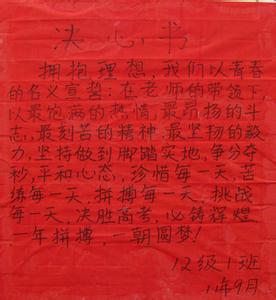 决心书
拥抱理想,我们以青春
的名义宣誓:在老师的带领下
以最饱满的热情,最昂扬的斗
志,最刻苦的精神,最坚扬的毅
力,坚持做到脚踏实地,争分夺
秒,平和心态,珍惜每一天,苦
练每一天,拼搏每一天,挑战
每一天,决胜高考,必铸辉煌
一年拼搏,一朝圆梦!
12级1班
11年9月